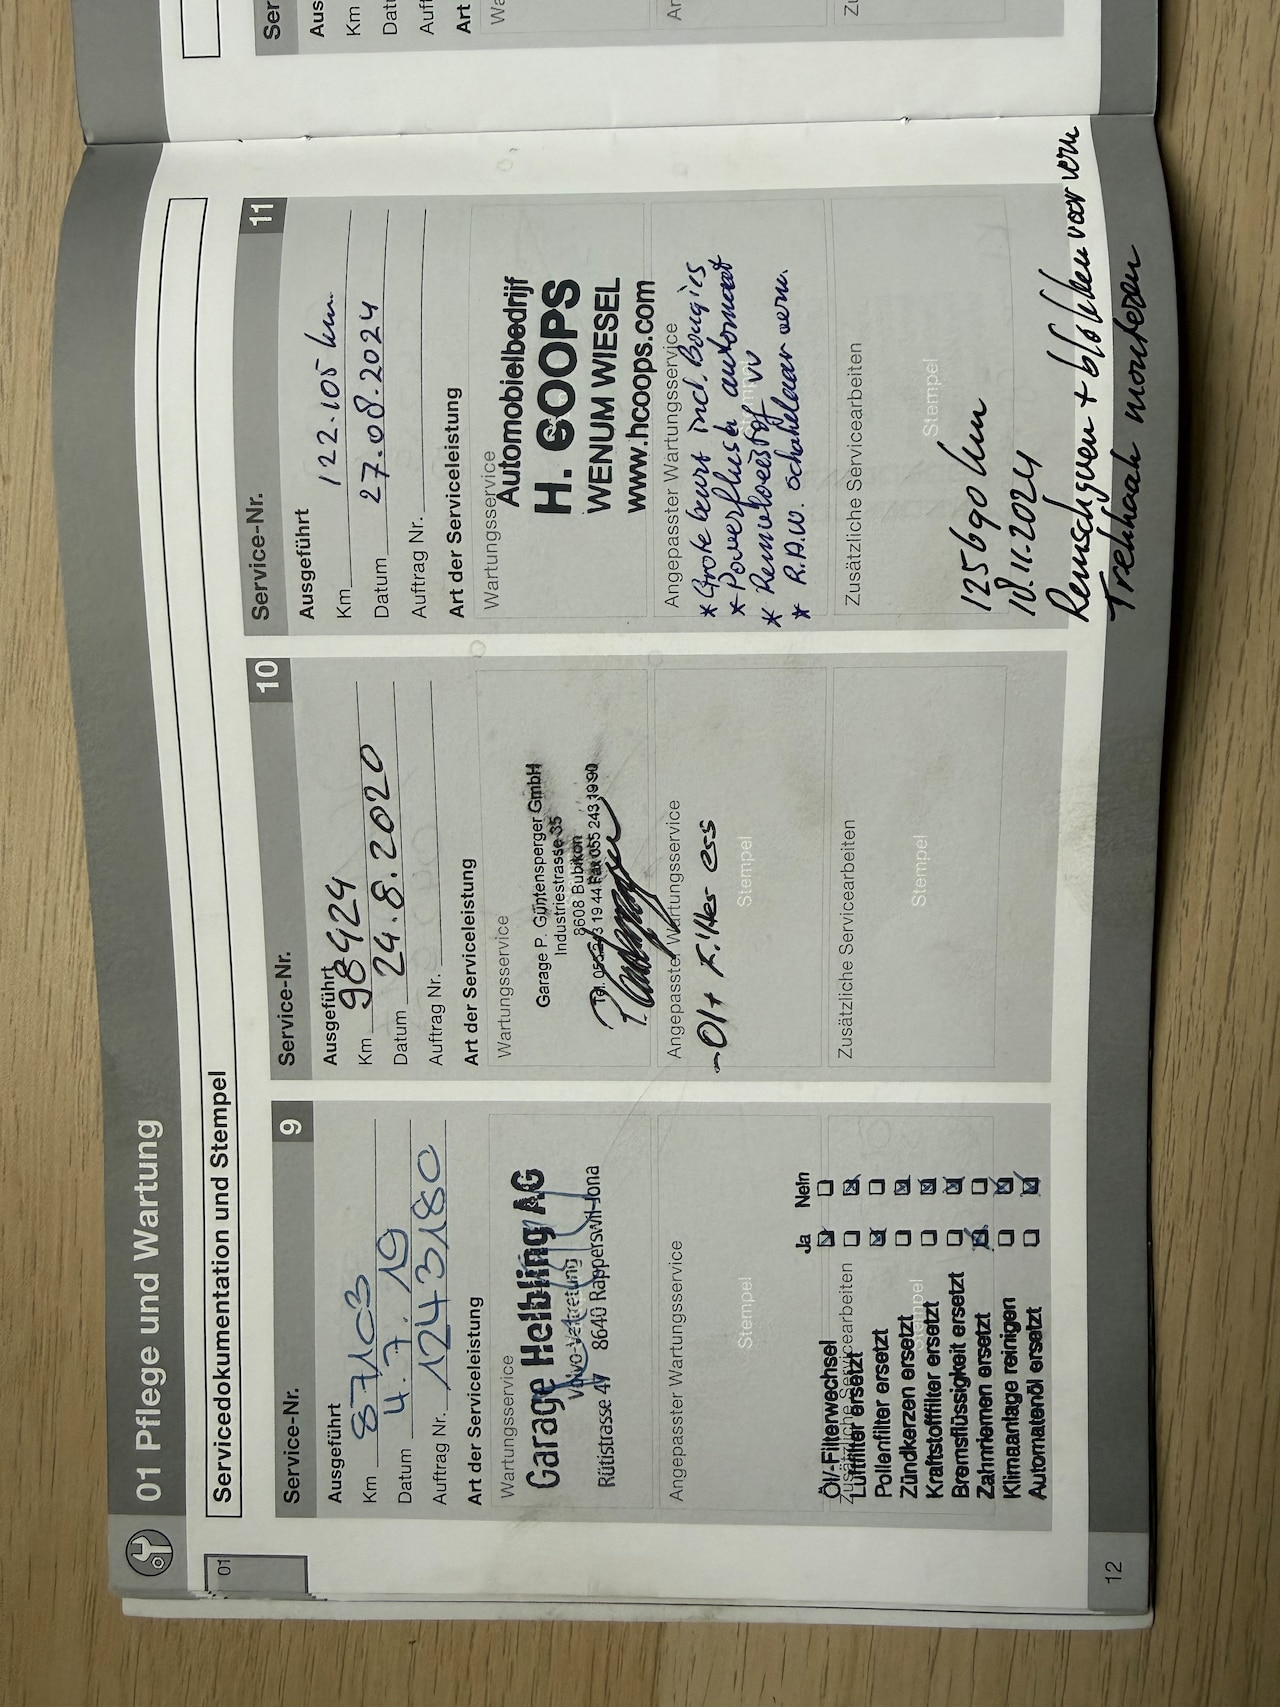 01 Pflege und Wartung
01
Servicedokumentation und Stempel
Service-Nr. 9
Ausgeführt
Km 87103
Datum 4.7.19
Auftrag Nr. 1243180
Art der Serviceleistung
Wartungsservice
Garage Helbling AG
Volvo-Vertretung
Rütistrasse 47 8640 Rapperswil-Jona
Angepasster Wartungsservice
Stempel
Ja Nein
Öl/-Filterwechsel
Zusätzliche Servicearbeiten
Luftfilter ersetzt
Pollenfilter ersetzt
Zündkerzen ersetzt
Stempel
Kraftstofffilter ersetzt
Bremsflüssigkeit ersetzt
Zahnriemen ersetzt
Klimaanlage reinigen
Automatenöl ersetzt
Service-Nr. 10
Ausgeführt
Km 98924
Datum 24.8.2020
Auftrag Nr.
Art der Serviceleistung
Wartungsservice
Garage P. Güntensperger GmbH
Industriestrasse 35
8608 Bubikon
Tel. 055 243 19 44 Fax 055 243 19 90
Angepasster Wartungsservice
- Öl + Filter ers
Stempel
Zusätzliche Servicearbeiten
Stempel
Service-Nr. 11
Ausgeführt
Km 122.105 km
Datum 27.08.2024
Auftrag Nr.
Art der Serviceleistung
Wartungsservice
Automobielbedrijf
H. COOPS
WENUM WIESEL
www.hcoops.com
Angepasster Wartungsservice
* Grote beurt incl. Bougies
* Powerflush automaat
Stempel
* Remvloeistof vv
* R.A.W. schakelaar vern.
Zusätzliche Servicearbeiten
Stempel
125690 km
18.11.2024
Remschijven + blokken voor vern
Trekhaak monteren
12
Ser
Aus
Km
Art